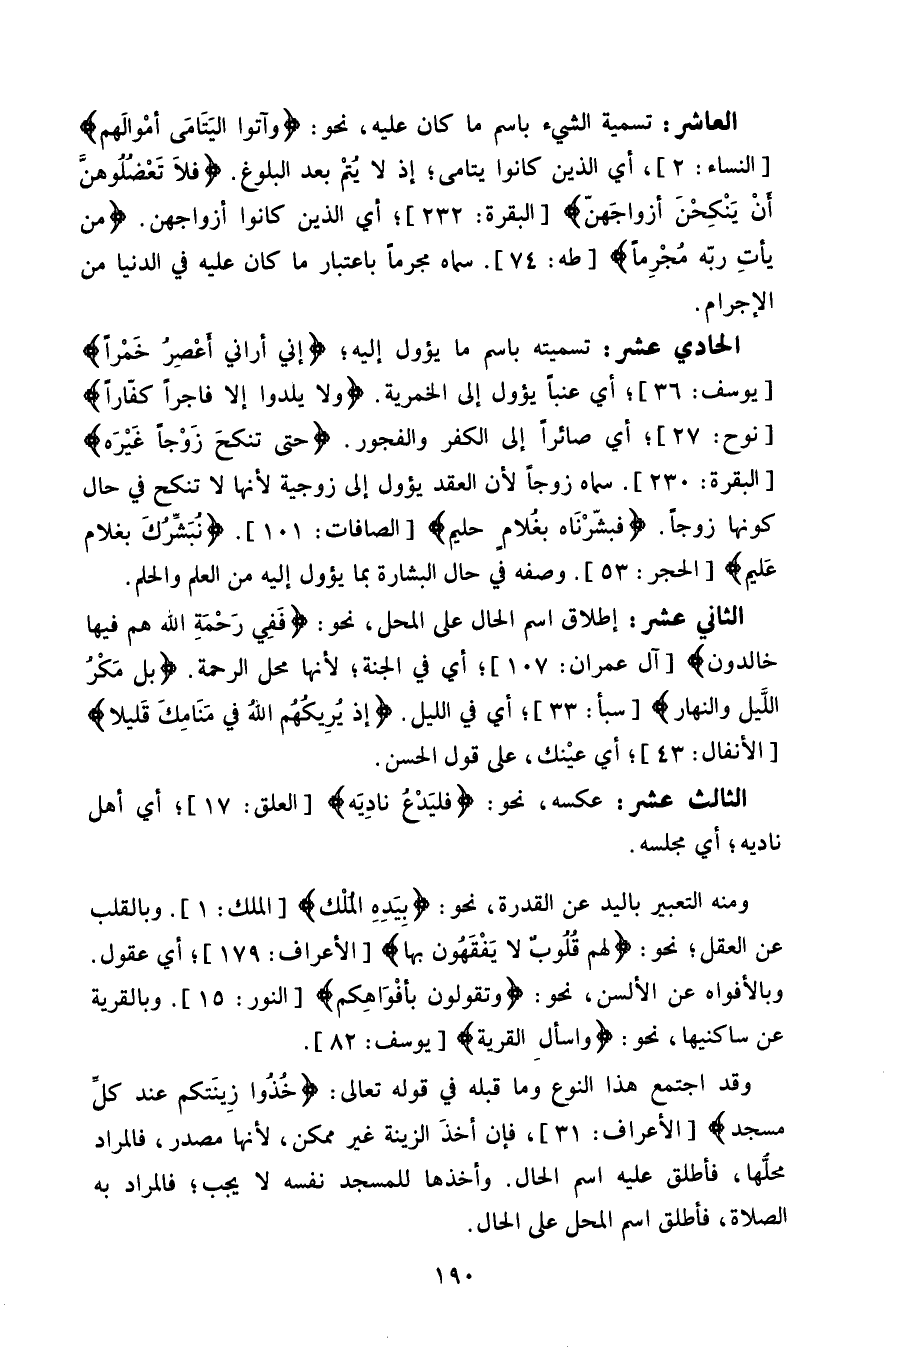 العاشر : تسمية الشيء باسم ما كان عليه، نحو : ﴿وآتوا اليَتَامَى أمْوالَهم﴾
[النساء: ٢]، أي الذين كانوا يتامى؛ إذ لا يُتْمَ بعد البلوغ. ﴿فلاَ تَعْضُلُوهنَّ
أَنْ يَنْكِحْنَ أزواجَهنّ﴾ [البقرة: ٢٣٢]؛ أي الذين كانوا أزواجهن. ﴿من
يأتِ ربّه مُجْرِماً﴾ [طه: ٧٤]. سماه مجرماً باعتبار ما كان عليه في الدنيا من
الإجرام.
الحادي عشر : تسميته باسم ما يؤول إليه؛ ﴿إني أراني أَعْصِرُ خَمْراً﴾
[يوسف: ٣٦]؛ أي عنباً يؤول إلى الخمرية. ﴿ولا يلدوا إلا فاجراً كفّاراً﴾
[نوح: ٢٧]؛ أي صائراً إلى الكفر والفجور. ﴿حتى تنكحَ زَوْجاً غَيْرَه﴾
[البقرة: ٢٣٠]. سماه زوجاً لأن العقد يؤول إلى زوجية لأنها لا تنكح في حال
كونها زوجاً. ﴿فبشّرْنَاه بغُلامٍ حليم﴾ [الصافات: ١٠١]. ﴿نُبَشِّرُكَ بغلام
عَليم﴾ [الحجر: ٥٣]. وصفه في حال البشارة بما يؤول إليه من العلم والحلم.
الثاني عشر : إطلاق اسم الحال على المحل، نحو : ﴿فَفِي رَحْمَةِ الله هم فيها
خالدون﴾ [آل عمران: ١٠٧]؛ أي في الجنة؛ لأنها محل الرحمة. ﴿بل مَكْرُ
اللَّيل والنهار﴾ [سبأ: ٣٣]؛ أي في الليل. ﴿إذ يُرِيكُهُم اللهُ في مَنَامِكَ قَليلا﴾
[الأنفال: ٤٣]؛ أي عيْنك، على قول الحسن.
الثالث عشر : عكسه، نحو : ﴿فليَدْعُ نادِيَه﴾ [العلق: ١٧]؛ أي أهل
ناديه؛ أي مجلسه.
ومنه التعبير باليد عن القدرة، نحو : ﴿بِيَدِهِ المُلْك﴾ [الملك: ١]. وبالقلب
عن العقل؛ نحو : ﴿لهم قُلُوبٌ لا يَفْقَهُون بها﴾ [الأعراف: ١٧٩]؛ أي عقول.
وبالأفواه عن الألسن، نحو : ﴿وتقولون بأفْوَاهِكم﴾ [النور: ١٥]. وبالقرية
عن ساكنيها، نحو : ﴿واسألِ القرية﴾ [يوسف: ٨٢].
وقد اجتمع هذا النوع وما قبله في قوله تعالى: ﴿خُذُوا زِينَتكم عند كلِّ
مسجد﴾ [الأعراف: ٣١]، فإن أخذَ الزينة غير ممكن، لأنها مصدر، فالمراد
محلُّها، فأطلق عليه اسم الحال. وأخذها للمسجد نفسه لا يجب؛ فالمراد به
الصلاة، فأطلق اسم المحل على الحال.
١٩٠